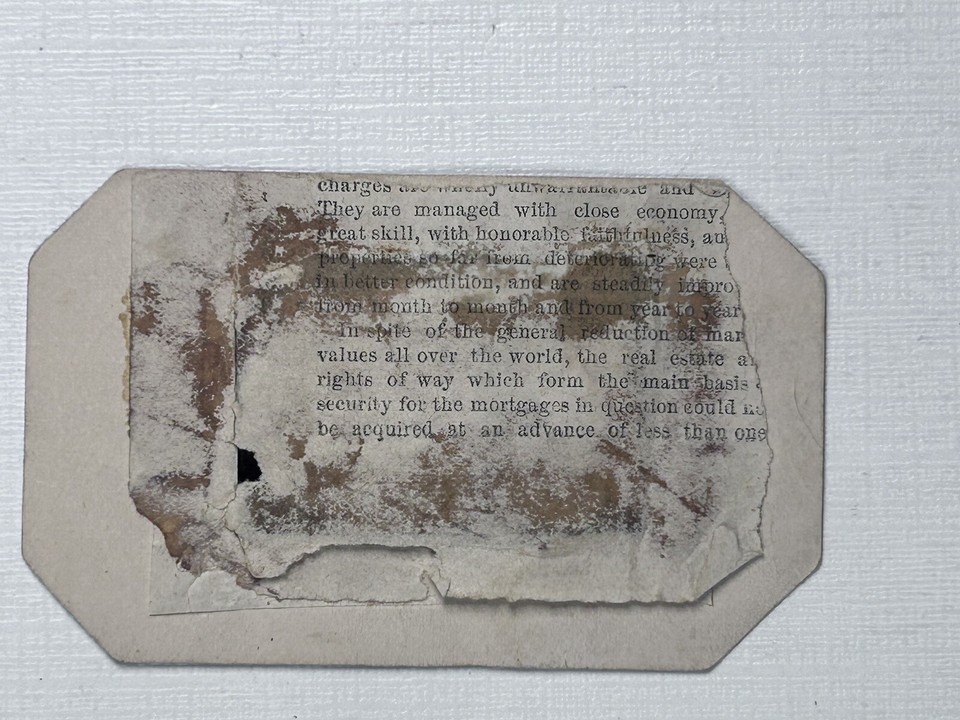 charges are wholly unwarrantable and
They are managed with close economy,
great skill, with honorable faithfulness, an
properties so far from deteriorating were
in better condition, and are steadily impro
from month to month and from year to year
In spite of the general reduction of mar
values all over the world, the real estate a
rights of way which form the main basis
security for the mortgages in question could no
be acquired at an advance of less than one